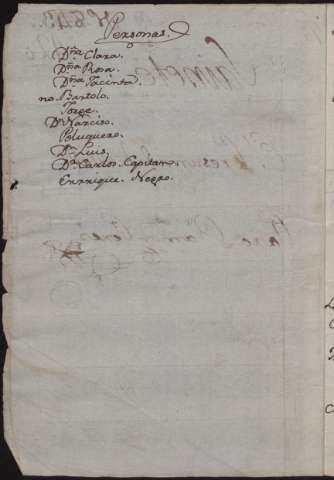 Personas.
Dña Clara.
Dña Rosa.
Dña Jacinta
no. Bartolo.
Jorge.
Dn Narciso.
Peluquero.
Dn Luis,
Dn Carlos. Capitan.
Enrrique. Negro.